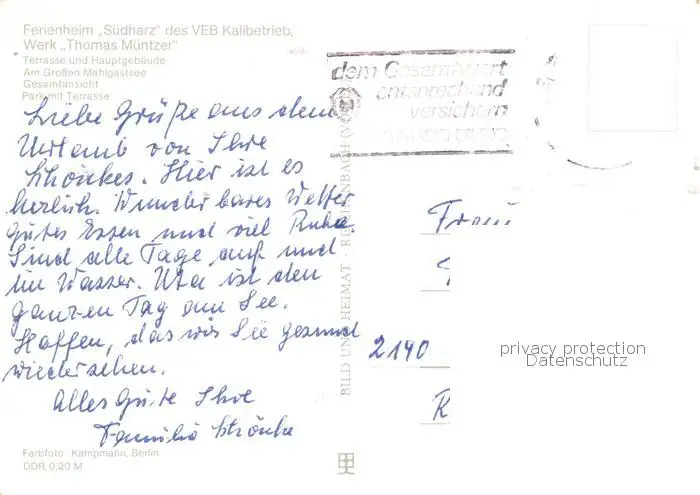 Ferienheim „Südharz" des VEB Kalibetrieb,
Werk „Thomas Müntzer"
Terrasse und Hauptgebäude
Am Großen Mahlgastsee
Gesamtansicht
Park mit Terrasse
Liebe Grüße aus dem
Urlaub von Ihre
Hier ist es
herlich. Wunderbares Wetter
gutes Essen und viel Ruhe.
Sind alle Tage auf und
im Wasser. Uta ist den
ganzen Tag am See.
Hoffen, das wir Sie gesund
wiedersehen.
Alles Gute Ihre
Familie
Farbfoto: Kampmann, Berlin
DDR 0,20 M
BILD UND HEIMAT · REICHENBACH
dem Gesamtwert
entsprechend
versichern
Frau
2140
R
privacy protection
Datenschutz